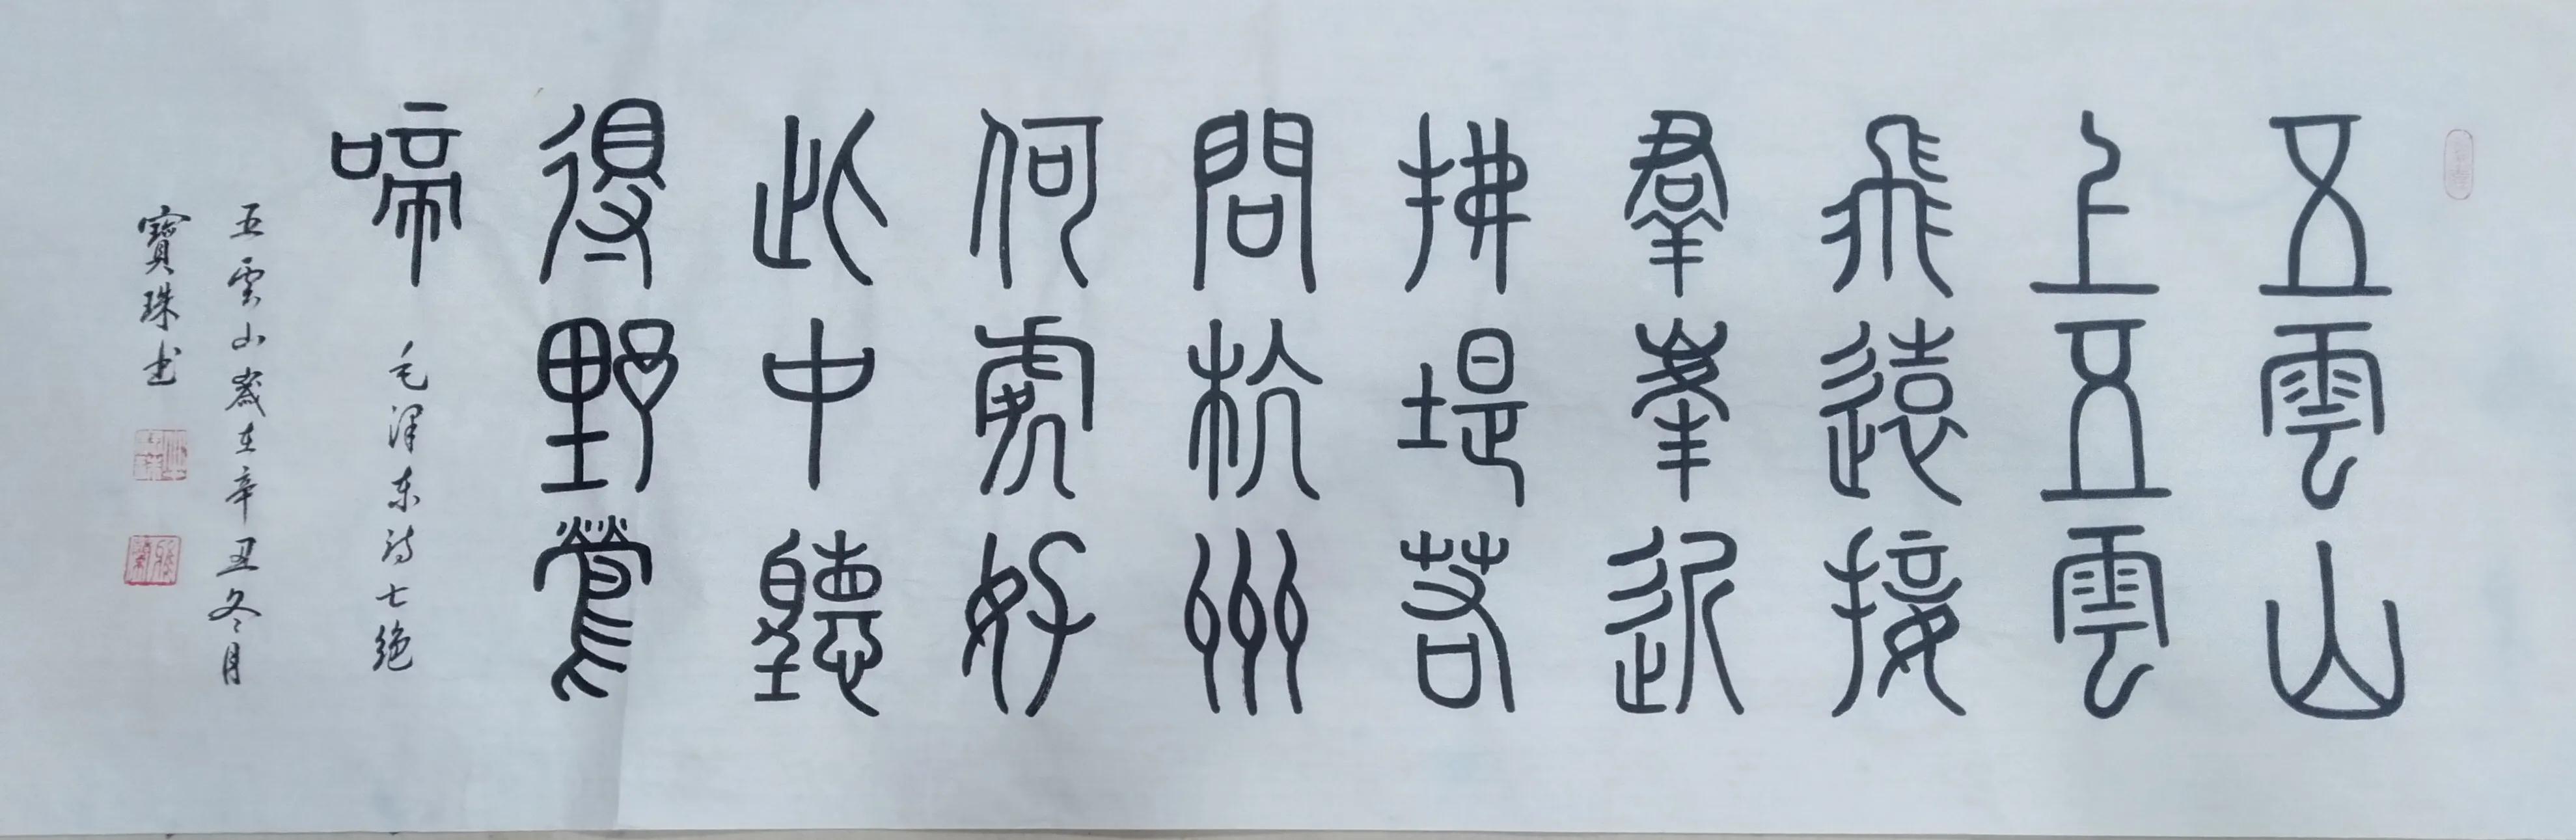 五雲山
上五雲
飛遠接
羣峯近
拂堤若
問杭州
何處好
此中聽
得野鶯
啼
毛澤东詩七絶
五雲山歲在辛丑冬月
寶珠书